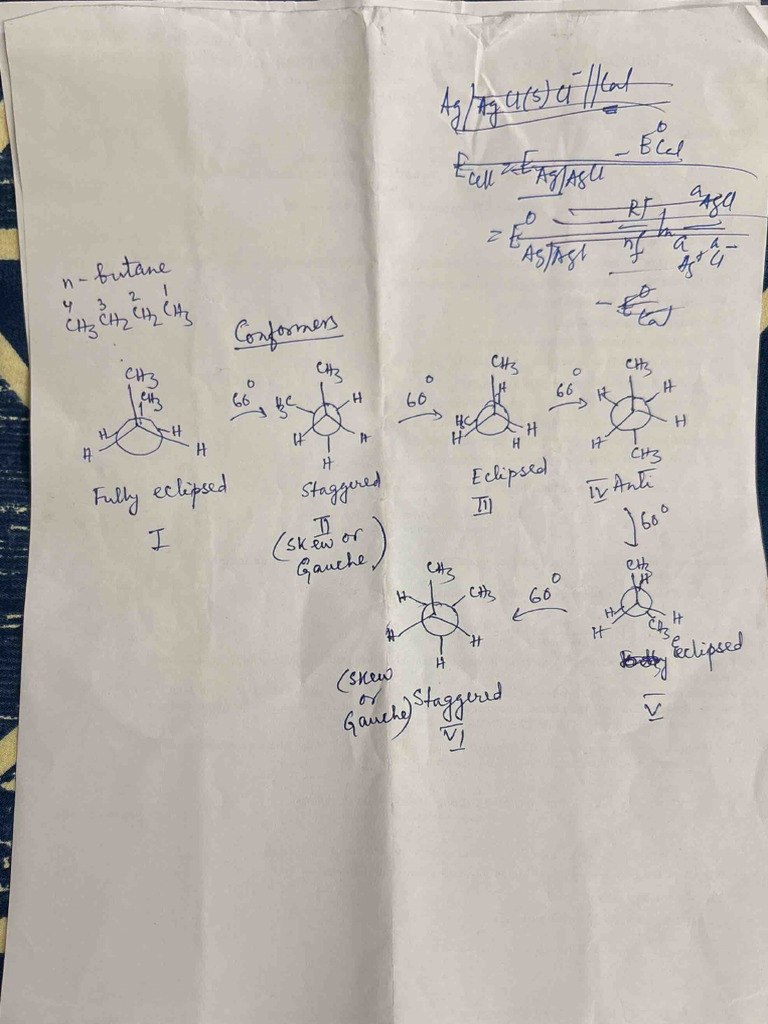 Ag/AgCl(s) Cl⁻ || Cal
E cell = E Ag/AgCl - E⁰ Cal
= E⁰ Ag/AgCl RT nf ln a AgCl
a Ag⁺ a Cl⁻
- E⁰ Cal
n-butane
4 3 2 1
CH3 CH2 CH2 CH3
Conformers
CH3
CH3
H H
H H
Fully eclipsed
I
60°
CH3
H3C H
H H
H
Staggered
II
(Skew or
Gauche)
60°
CH3
H
H3C
H H
H
Eclipsed
III
60°
CH3
H H
H H
CH3
IV Anti
60°
CH3
H
H H
CH3
eclipsed
V
60°
CH3
H CH3
H H
H
(Skew
or
Gauche) Staggered
VI